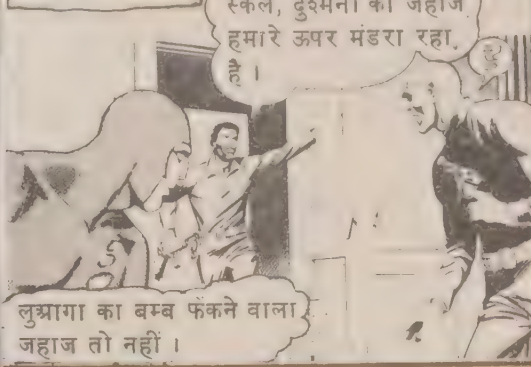 स्कल, दुश्मनों का जहाज
हमारे ऊपर मंडरा रहा
है ।
लुआगा का बम्ब फेंकने वाला
जहाज तो नहीं ।